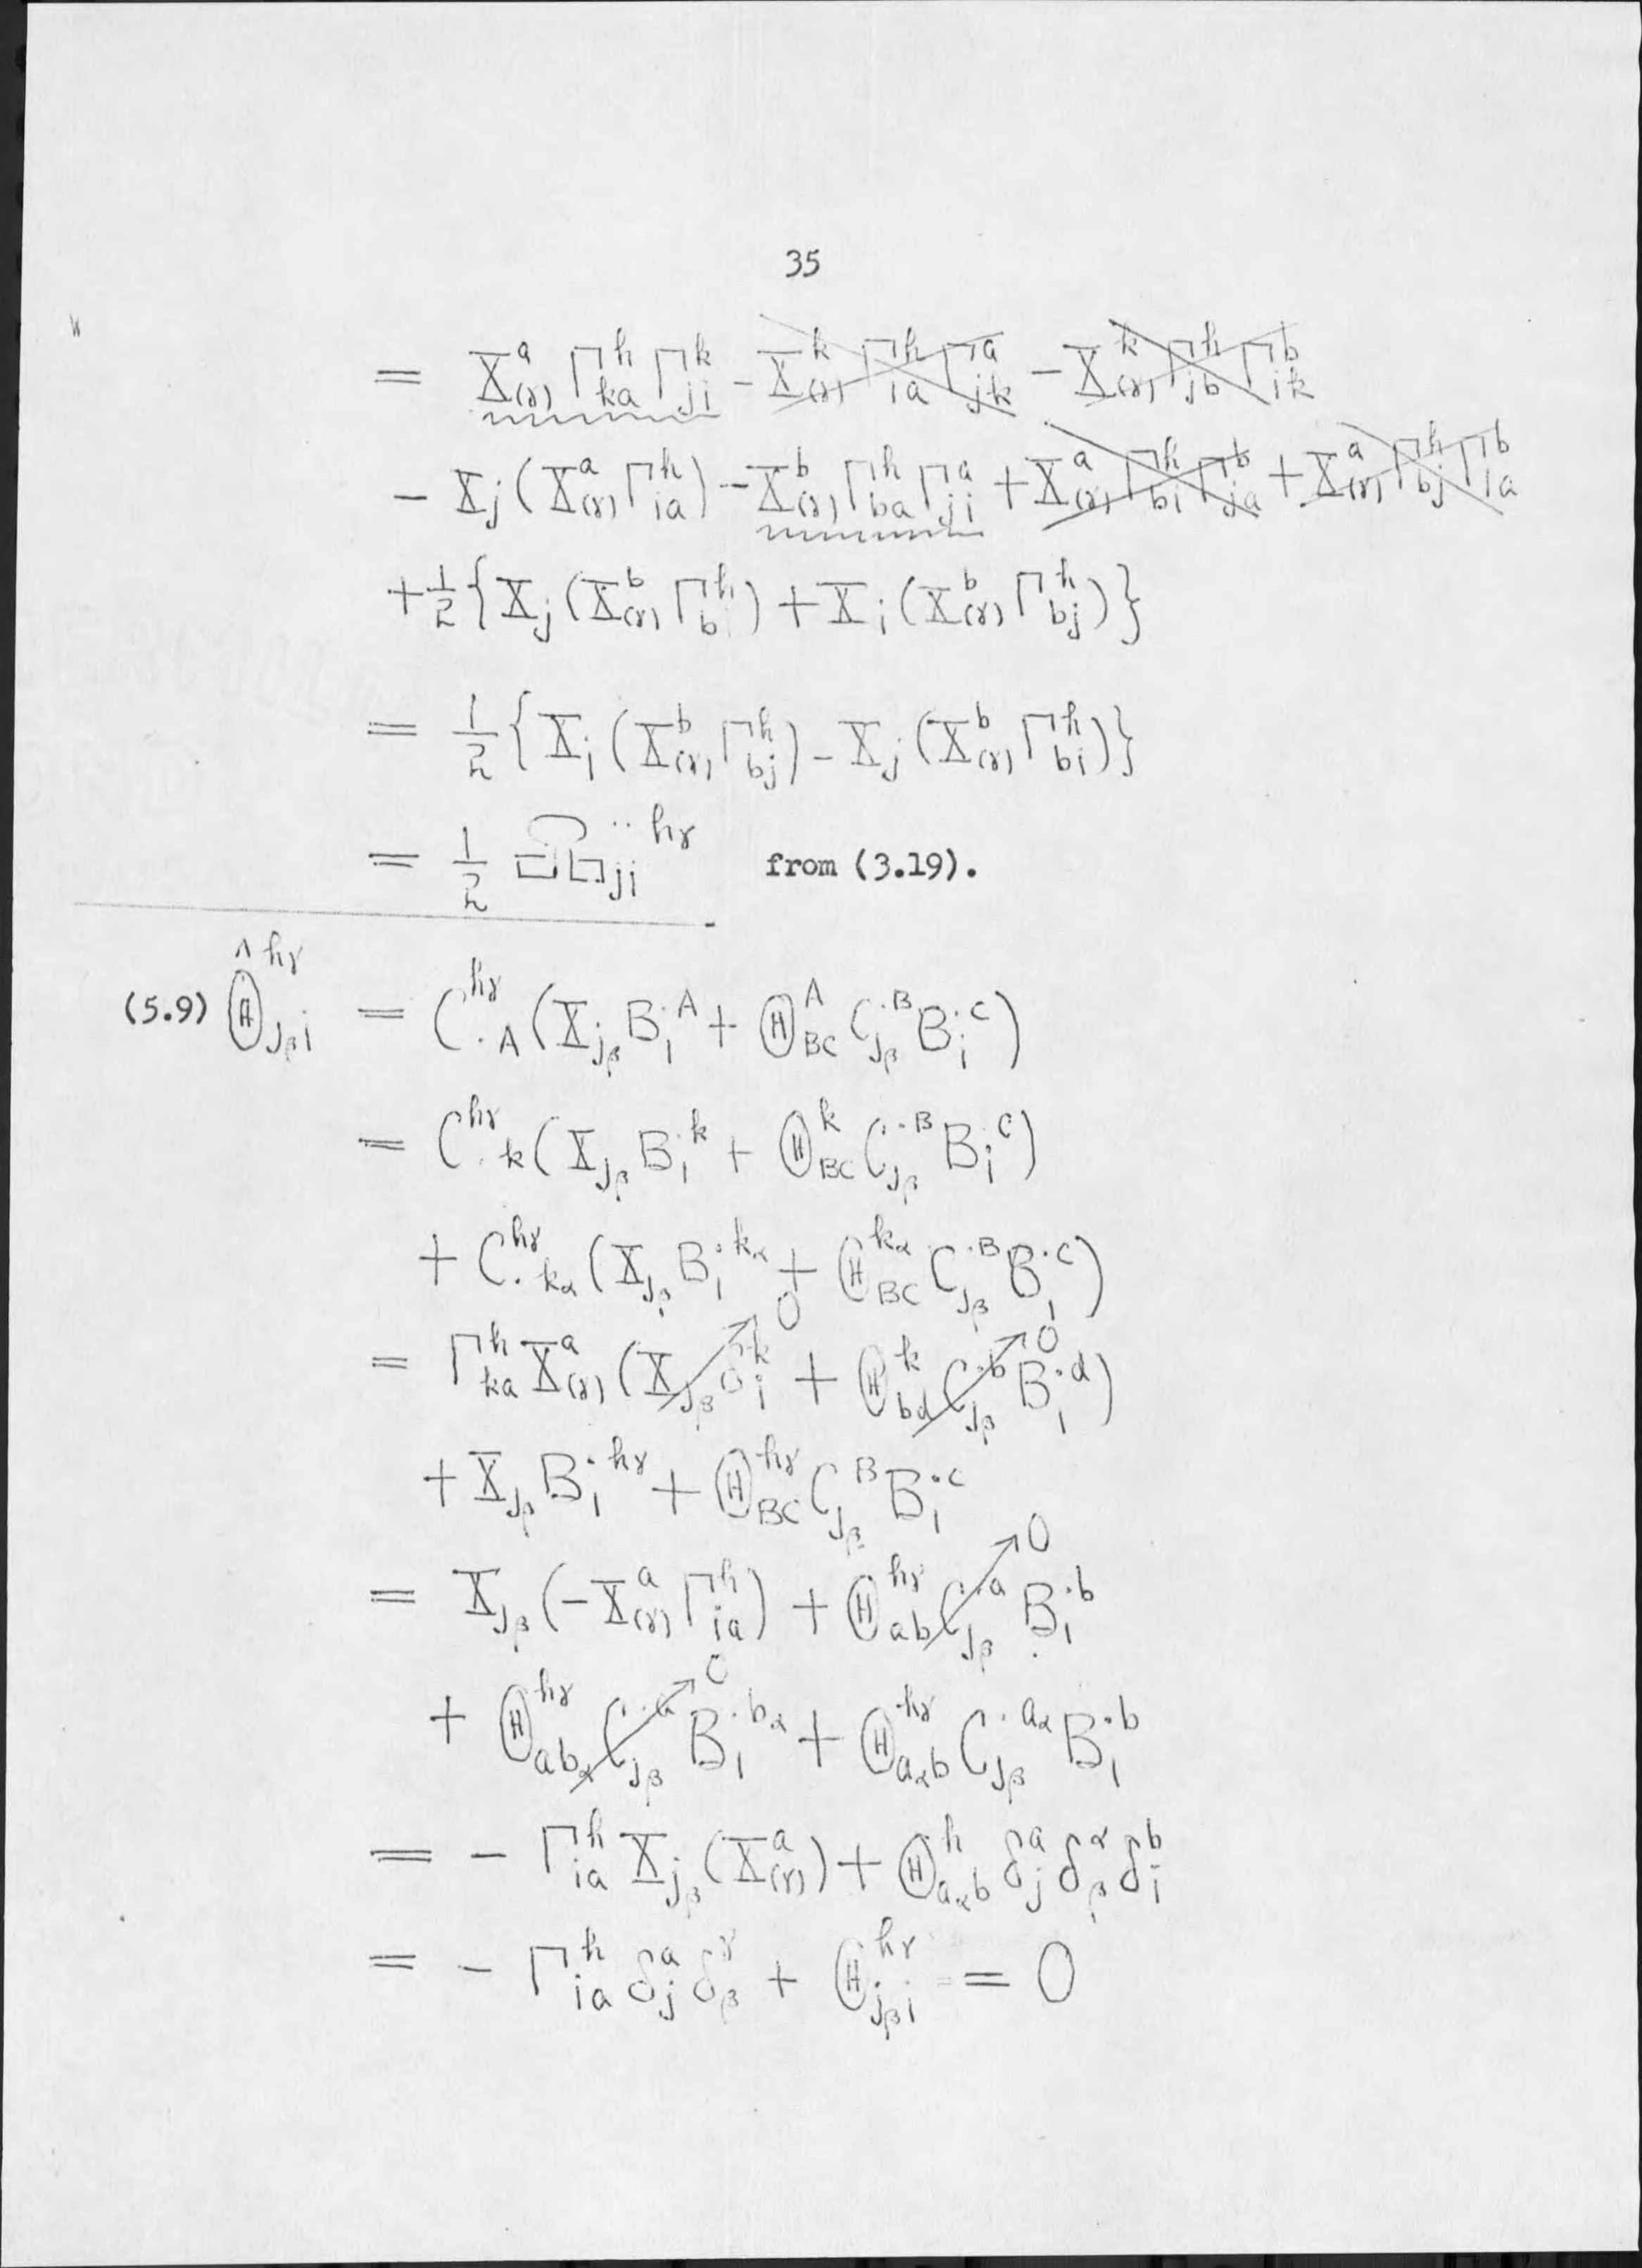 35
= X^a_(γ) Γ^h_ka Γ^k_ji - X^k_(γ) Γ^h_ia Γ^a_jk - X^k_(γ) Γ^h_jb Γ^b_ik
- X_j (X^a_(γ) Γ^h_ia) - X^b_(γ) Γ^h_ba Γ^a_ji + X^a_(γ) Γ^h_bi Γ^b_ja + X^a_(γ) Γ^h_bj Γ^b_ia
+ 1/2 { X_j (X^b_(γ) Γ^h_bi) + X_i (X^b_(γ) Γ^h_bj) }
= 1/2 { X_i (X^b_(γ) Γ^h_bj) - X_j (X^b_(γ) Γ^h_bi) }
= 1/2 ^{..hγ}_ji from (3.19).
(5.9) Θ̂^hγ_{jβ i} = C^hγ_{.A} (X_jβ B_i^{.A} + Θ^A_BC C_jβ^{.B} B_i^{.C})
= C^hγ_{.k} (X_jβ B_i^{.k} + Θ^k_BC C_jβ^{.B} B_i^{.C})
+ C^hγ_{.kα} (X_jβ B_i^{.kα} + Θ^kα_BC C_jβ^{.B} B_i^{.C})
= Γ^h_ka X^a_(γ) (X_jβ δ^k_i → 0 + Θ^k_bd C_jβ^{.b} → 0 B_i^{.d})
+ X_jβ B_i^{.hγ} + Θ^hγ_BC C_jβ^B B_i^{.C}
= X_jβ (-X^a_(γ) Γ^h_ia) + Θ^hγ_ab C_jβ^{.a} → 0 B_i^{.b}
+ Θ^hγ_{abα} C_jβ^{.a} → 0 B_i^{.bα} + Θ^hγ_{aαb} C_jβ^{.aα} B_i^{.b}
= - Γ^h_ia X_jβ (X^a_(γ)) + Θ^h_{aαb} δ^a_j δ^α_β δ^b_i
= - Γ^h_ia δ^a_j δ^γ_β + Θ^hγ_{jβ i} = 0